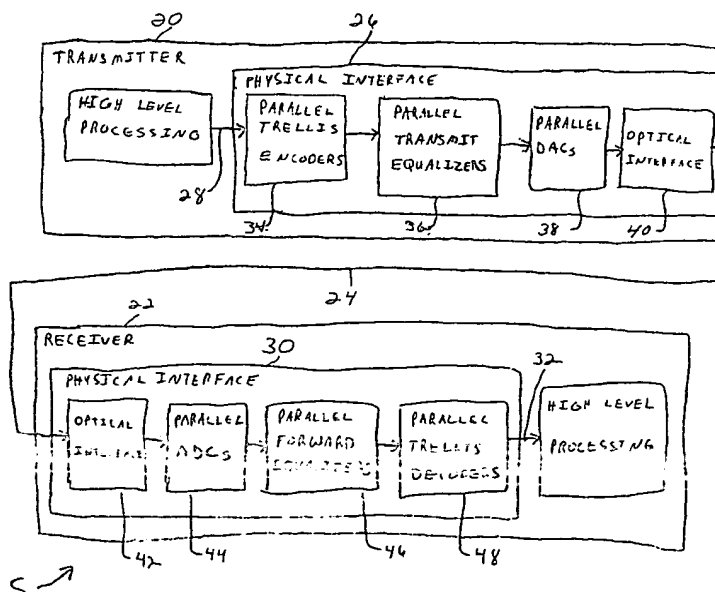 20
26
TRANSMITTER
PHYSICAL INTERFACE
HIGH LEVEL
PROCESSING
PARALLEL
TRELLIS
ENCODERS
PARALLEL
TRANSMIT
EQUALIZERS
PARALLEL
DACS
OPTICAL
INTERFACE
28
34
36
38
40
24
22
RECEIVER
30
PHYSICAL INTERFACE
32
OPTICAL
PARALLEL
ADCS
PARALLEL
FORWARD
EQUALIZERS
PARALLEL
TRELLIS
DECODERS
HIGH LEVEL
PROCESSING
42
44
46
48